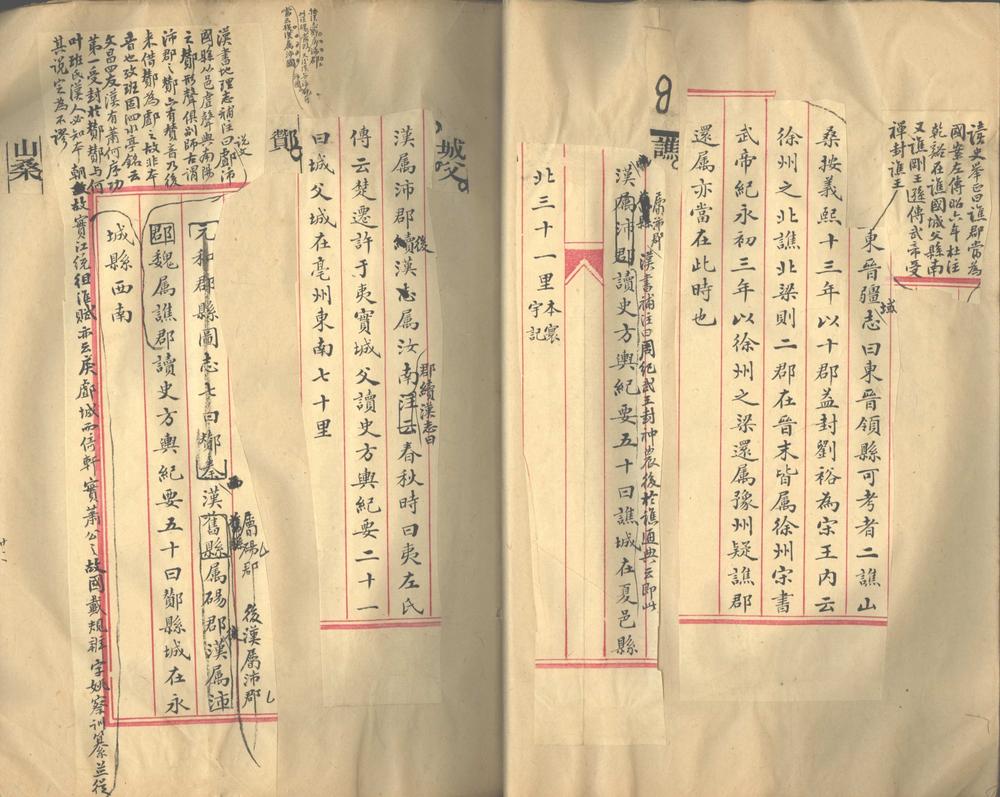 讀史舉正曰譙郡當為
國案左傳昭六年杜注
乾谿在譙國城父縣南
又譙剛王遜傳武帝受
禪封譙王
東晉疆域志曰東晉領縣可考者二譙山
桑按義熙十三年以十郡益封劉裕為宋王內云
徐州之北譙北梁則二郡在晉末皆属徐州宋書
武帝紀永初三年以徐州之梁還属豫州疑譙郡
還属亦當在此時也
8
譙
漢書補注曰周紀武王封神農後於譙通典云即此
漢属沛郡讀史方輿紀要五十曰譙城在夏邑縣
北三十一里本寰宇記
城父
郡續漢志曰
漢属沛郡續漢志属汝南注云春秋時曰夷左氏
傳云楚遷許于夷實城父讀史方輿紀要二十一
曰城父城在亳州東南七十里
酇
漢書地理志補注曰酇沛
國縣从邑虘聲與南陽
之酇形聲俱别師古謂
沛郡之酇亦有贊音乃後
來借酇為䣜之故非本
音也攷班固泗水亭銘云
文昌四友漢有蕭何序功
第一受封於酇酇與何
叶班氏漢人必知本朝故實江統徂淮賦亦云戾䣜城而倚軒實蕭公之故國戴規
字姚察訓纂並從
其說定為不謬
属碭郡
後漢属沛郡
元和郡縣圖志七曰酇秦漢舊縣属碭郡漢属沛
郡魏属譙郡讀史方輿紀要五十曰酇縣城在永
城縣西南
山桑